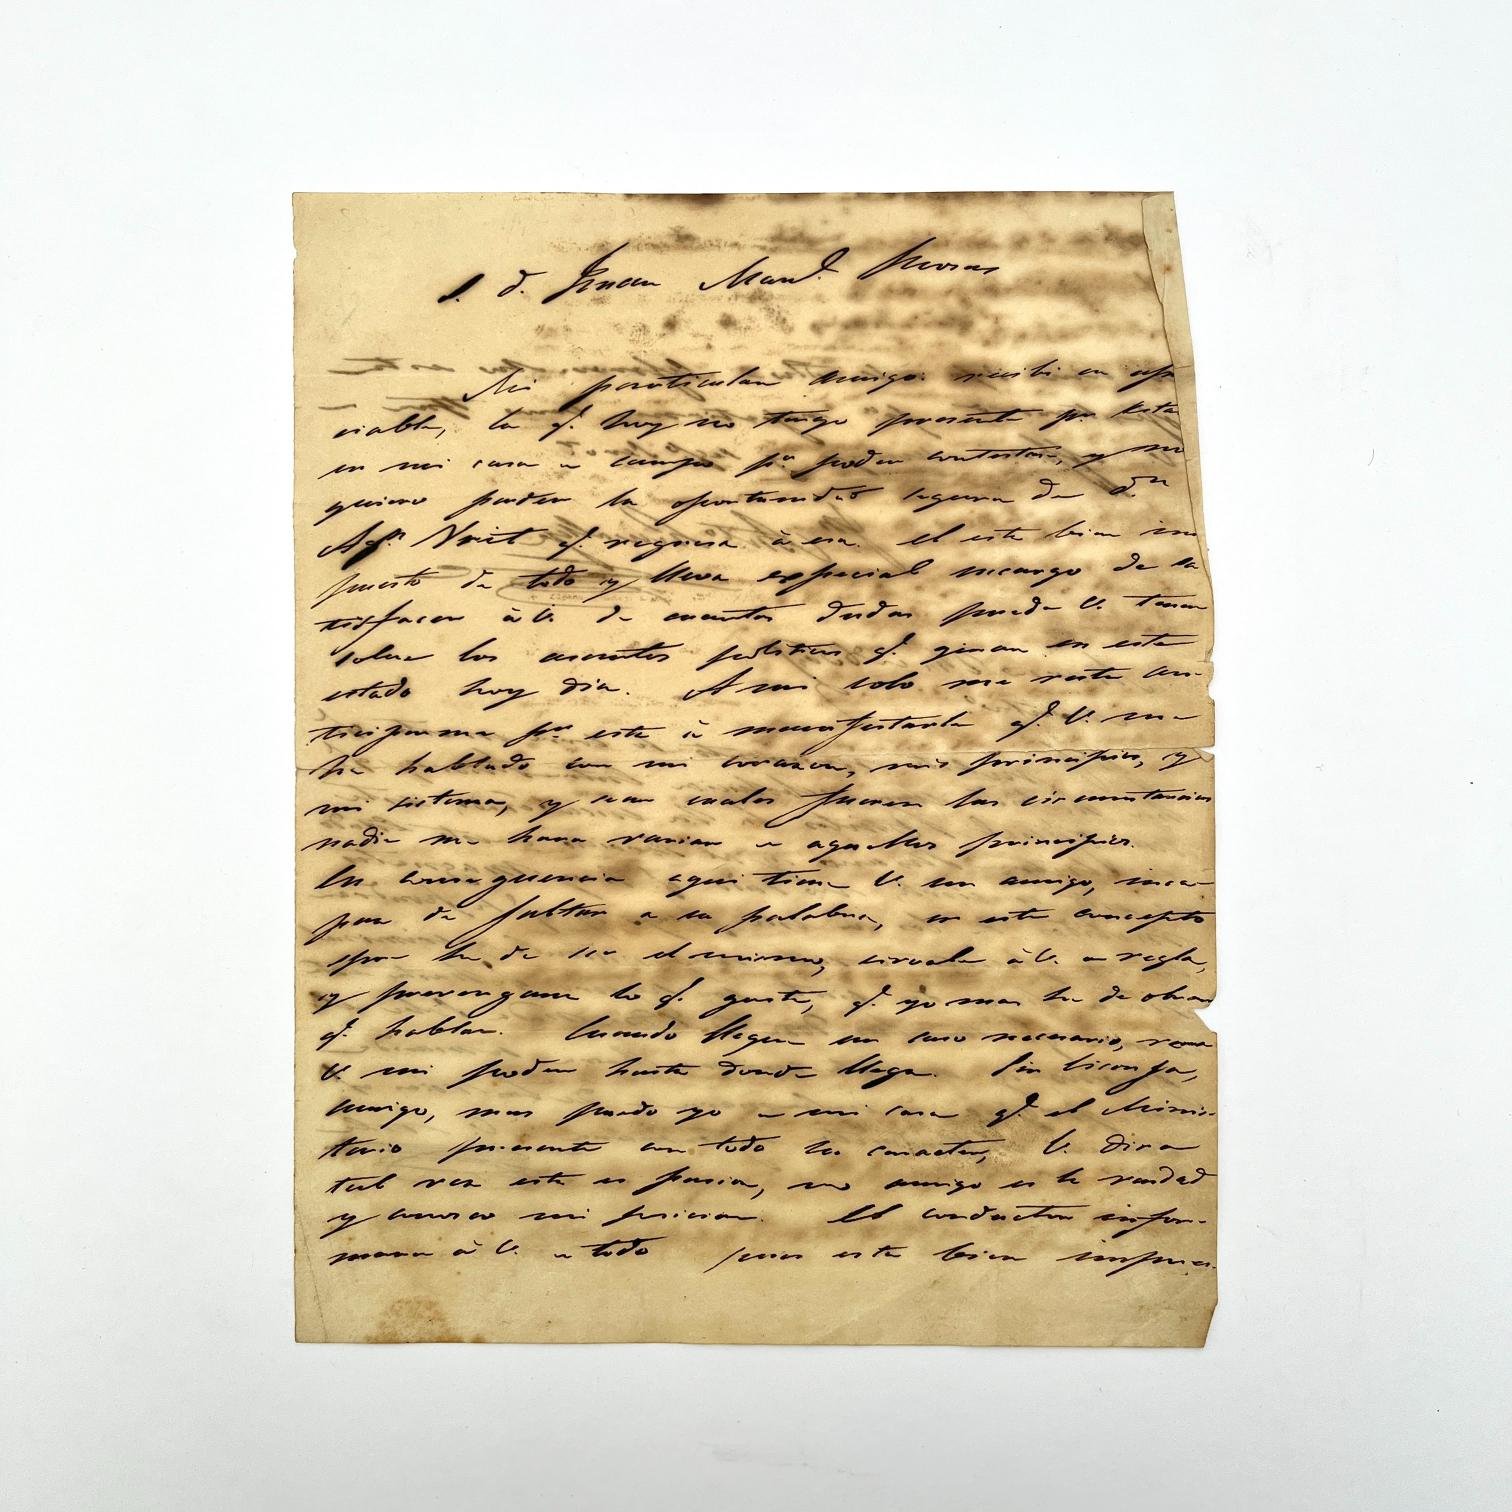 S. D. Juan Manl. Rosas
Mi particular amigo: recibi su apre
ciable, la q.e hoy no tengo presente pr. estar
en mi casa de campo pa. poder contestar, y no
quiero perder la oportunidad segura de Dn
Agn. Wrict q.e regresa à esa. el está bien im
puesto de todo y lleva especial encargo de sa
tisfacer à V. de cuantas dudas pueda V. tener
sobre los asuntos politicos q.e giran en este
estado hoy dia. A mi solo me resta an-
ticiparme pr. esta à manifestarle q.e V. me
ha hablado con mi corazon, mis principios, y
mi sistema, y sean cuales fueren las circunstancias
nadie me hara variar de aquellos principios.
En consequencia aqui tiene V. un amigo, inca-
paz de faltar a su palabra, en este concepto
ha de ser el mismo, sirvale à V. de regla,
y prevengame lo q.e guste, q.e yo mas he de obrar
q.e hablar. Cuando llegue un caso necesario, vera
V. mi poder hasta donde llega. Sin lisonja,
amigo, mas puedo yo de mi casa q.e el Minis-
terio presente con todo su caracter, V. dira
tal vez esto es pasion, no amigo es la verdad
y conosco mi posicion. El conductor infor-
mara à V. de todo pues esta bien impues-